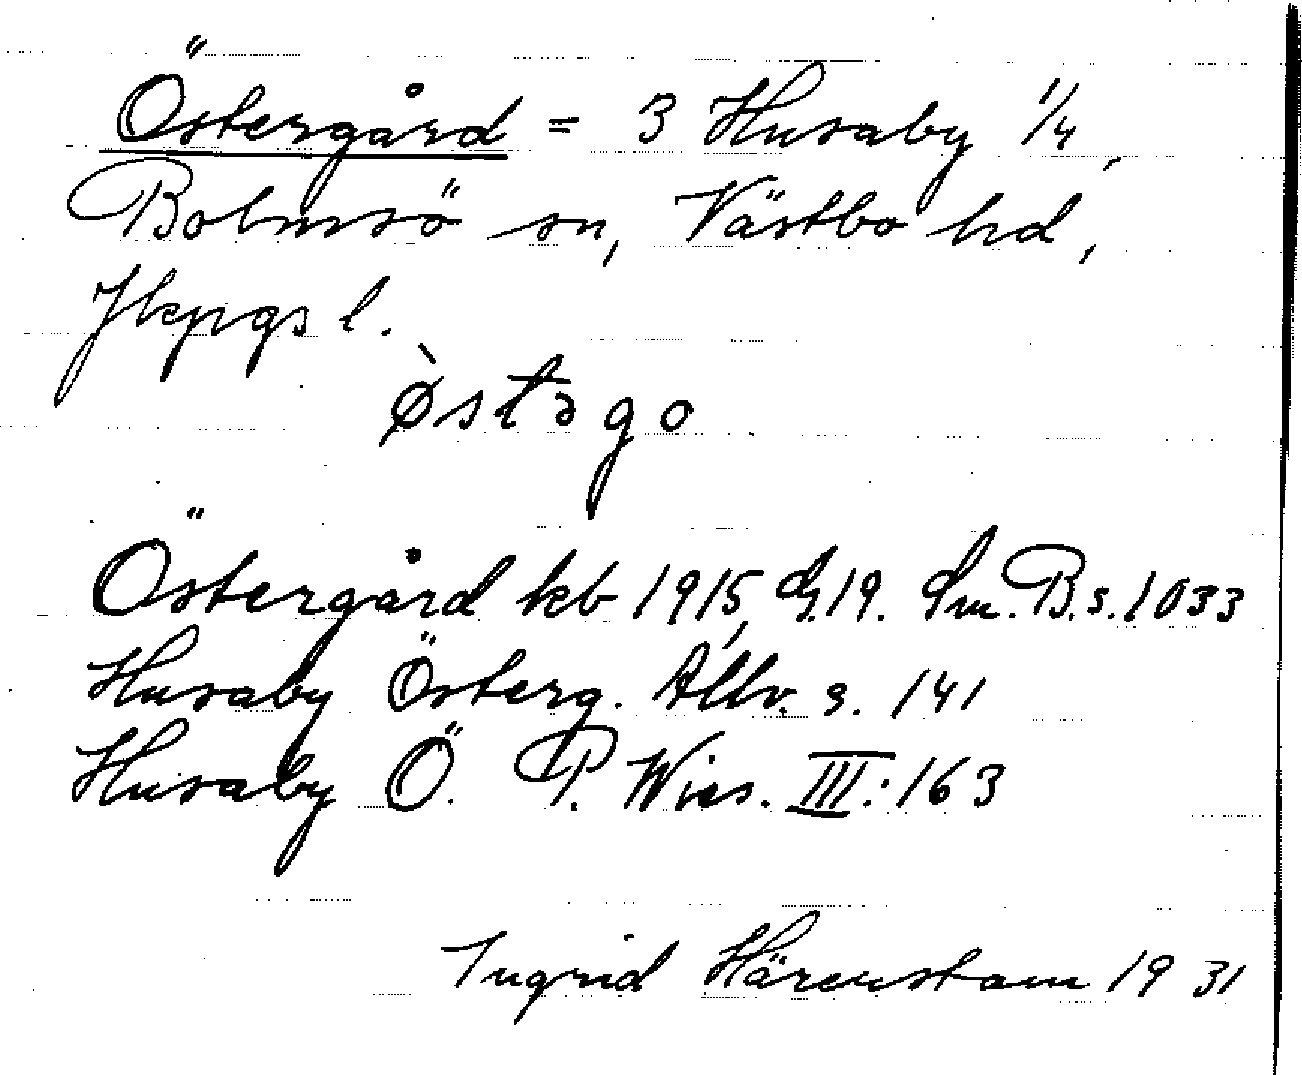 Östergård = 3 Husaby 1/4,
Bolmsö sn, Västbo hd,
Jkpgs l.
ø̀stəgo
Östergård kb 1915, G.19. Sm.B.s.1033
Husaby Österg. Allv. s. 141
Husaby Ö. P. Wies. III:163
Ingrid Härenstam 1931